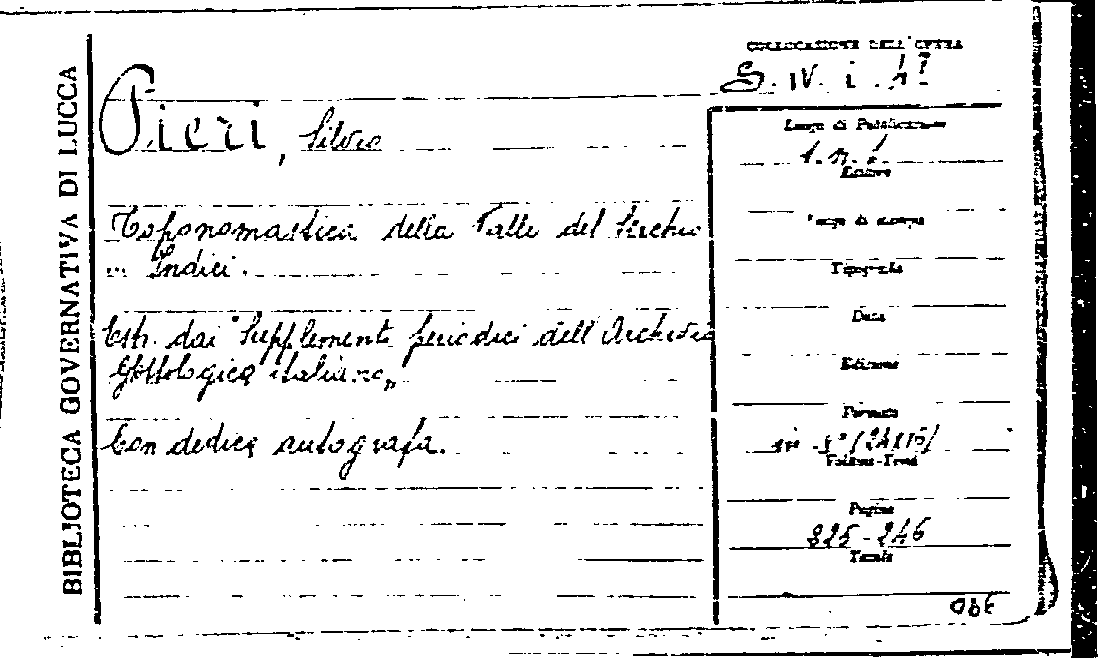 BIBLIOTECA GOVERNATIVA DI LUCCA
COLLOCAZIONE DELL'OPERA
S. IV. i.
Pieri, Silvio
Toponomastica della Valle del Serchio
Indici.
Estr. dai "Supplementi periodici dell'Archivio
Glottologico italiano„
Con dedica autografa.
Luogo di Pubblicazione
s.n.l.
Editore
Luogo di stampa
Tipografia
Data
Edizione
Formato
in 8° (24x15)
Volume-Tomi
Pagine
225-246
Tavole